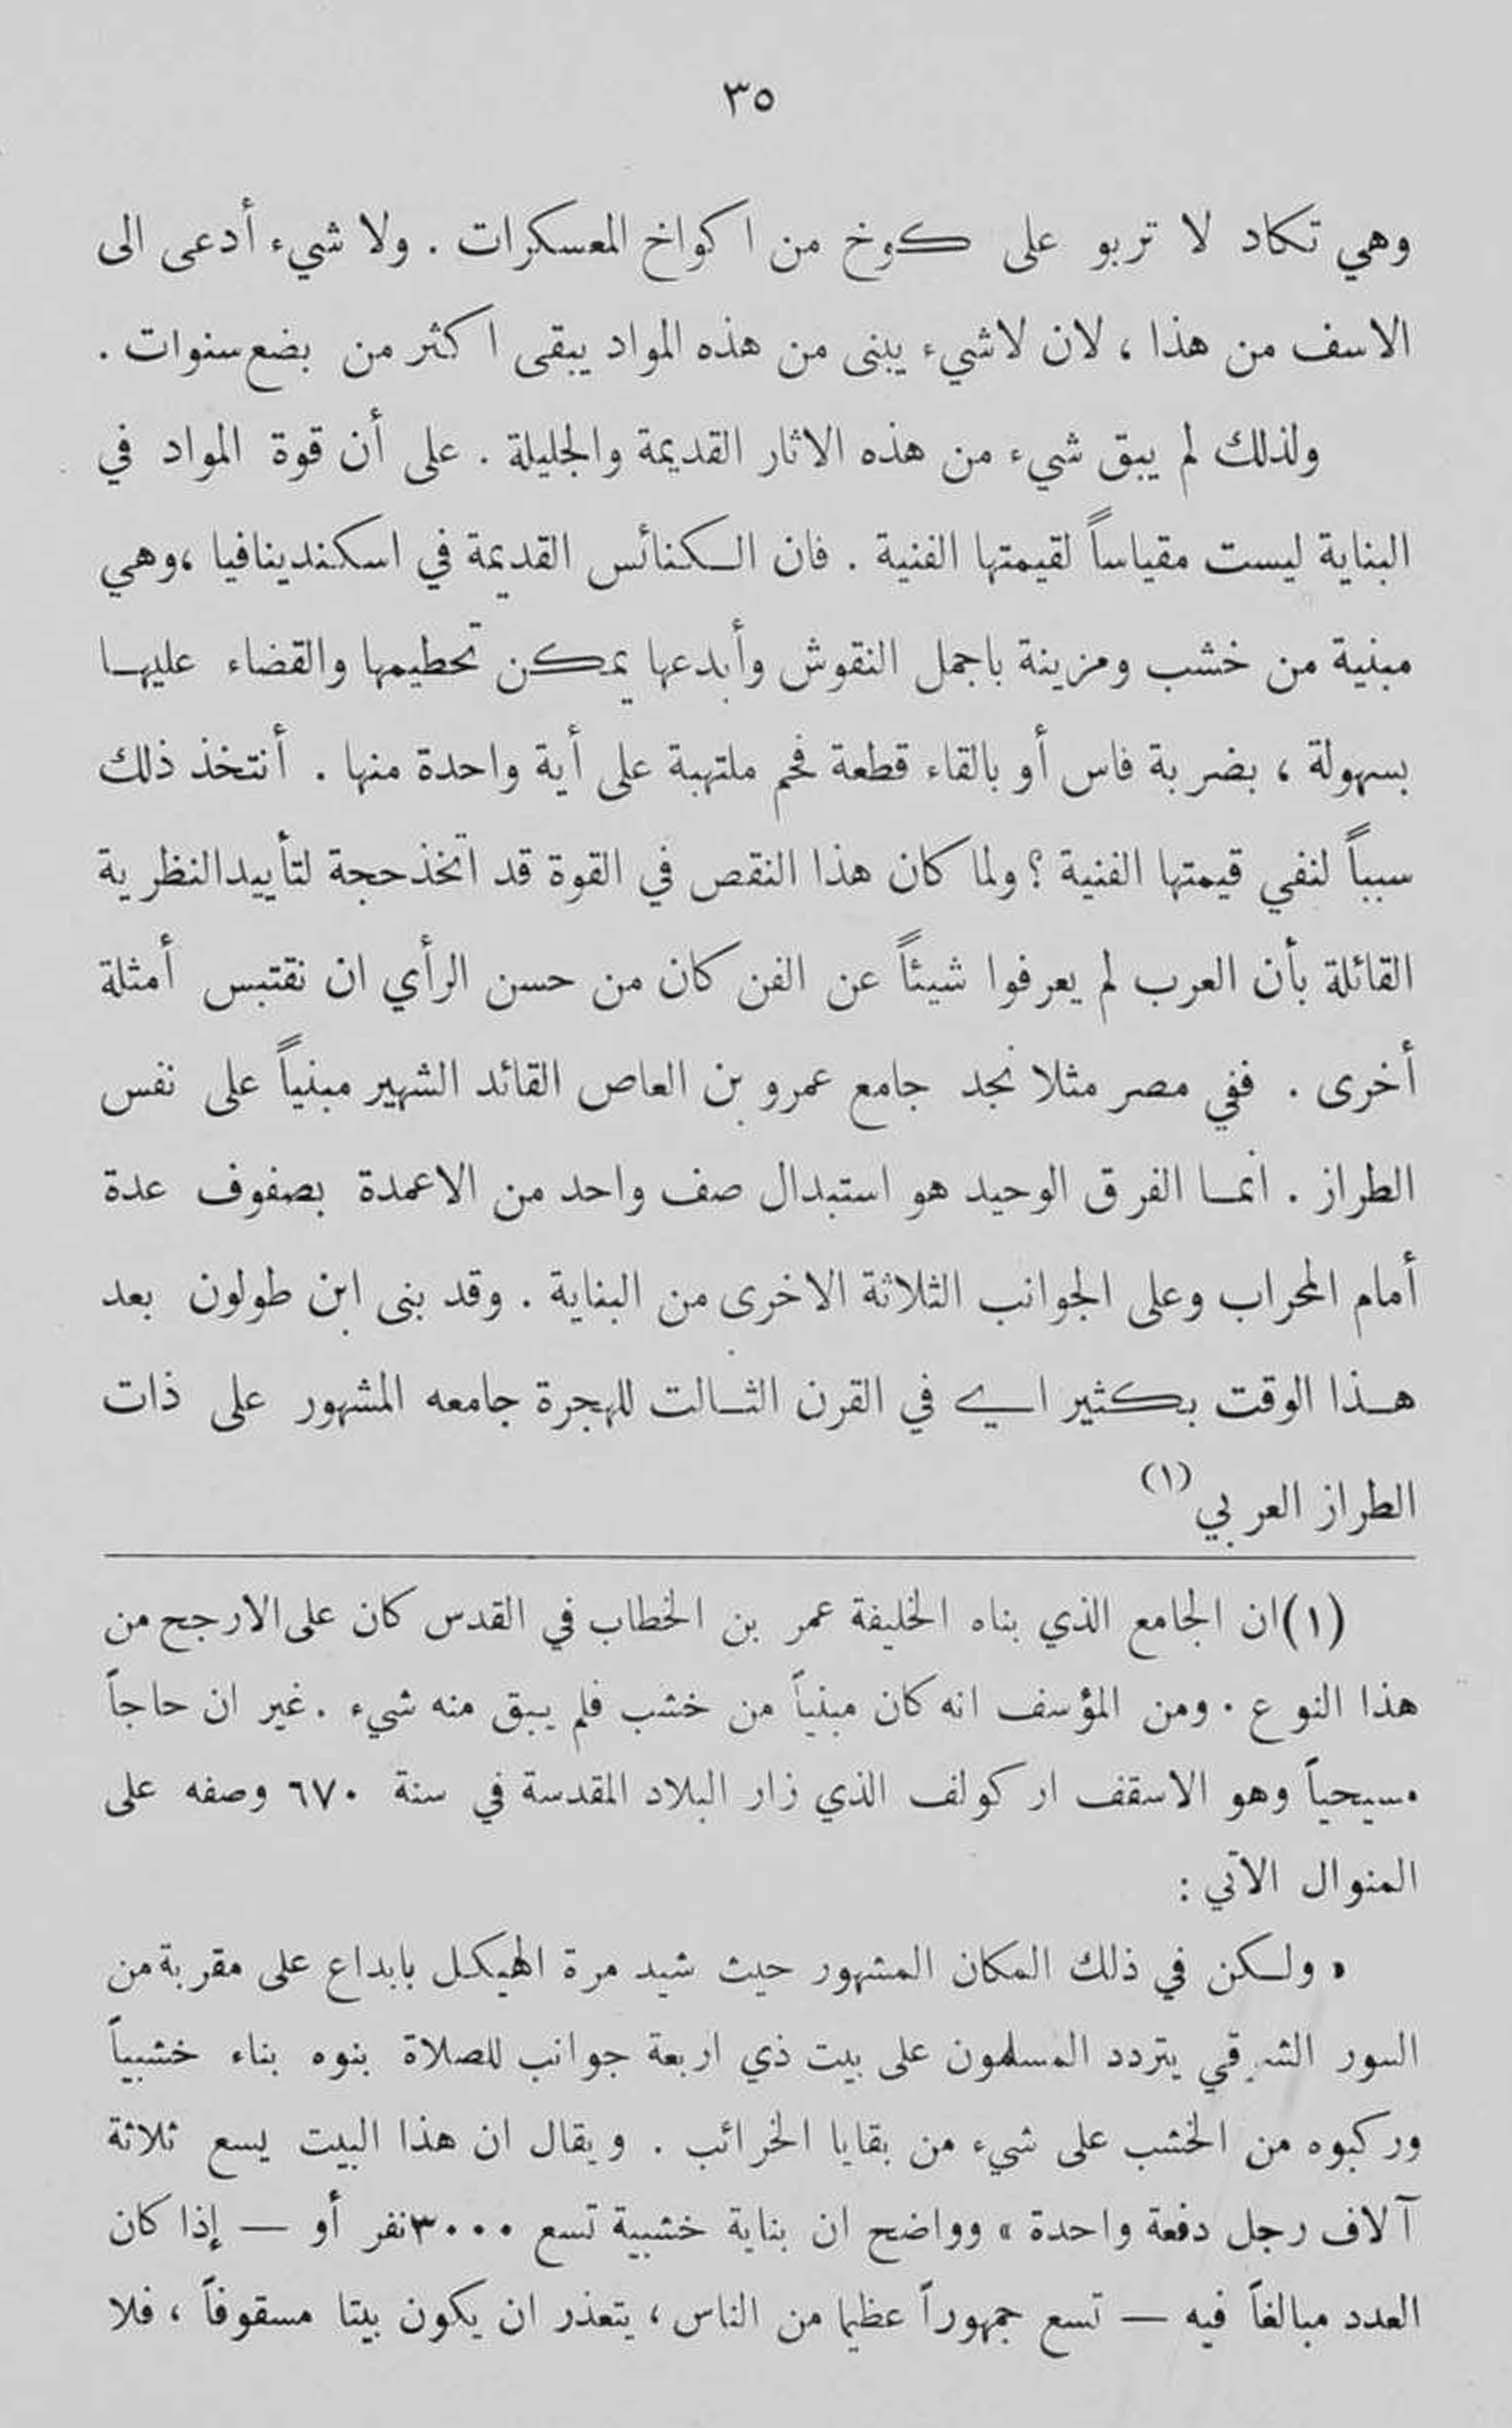 ٣٥
وهي تكاد لا تربو على كوخ من اكواخ المعسكرات . ولا شيء أدعى الى
الاسف من هذا ، لان لاشيء يبنى من هذه المواد يبقى اكثر من بضع سنوات .
ولذلك لم يبق شيء من هذه الاثار القديمة والجليلة . على أن قوة المواد في
البناية ليست مقياساً لقيمتها الفنية . فان الكنائس القديمة في اسكندينافيا ،وهي
مبنية من خشب ومزينة باجمل النقوش وأبدعها يمكن تحطيمها والقضاء عليها
بسهولة ، بضربة فاس أو بالقاء قطعة فحم ملتهبة على أية واحدة منها . أنتخذ ذلك
سبباً لنفي قيمتها الفنية ؟ ولما كان هذا النقص في القوة قد اتخذ حجة لتأييد النظرية
القائلة بأن العرب لم يعرفوا شيئاً عن الفن كان من حسن الرأي ان نقتبس أمثلة
أخرى . ففي مصر مثلا نجد جامع عمرو بن العاص القائد الشهير مبنياً على نفس
الطراز . انما الفرق الوحيد هو استبدال صف واحد من الاعمدة بصفوف عدة
أمام المحراب وعلى الجوانب الثلاثة الاخرى من البناية . وقد بنى ابن طولون بعد
هذا الوقت بكثير اي في القرن الثالت للهجرة جامعه المشهور على ذات
الطراز العربي (١)
(١) ان الجامع الذي بناه الخليفة عمر بن الخطاب في القدس كان على الارجح من
هذا النوع . ومن المؤسف انه كان مبنياً من خشب فلم يبق منه شيء . غير ان حاجاً
مسيحياً وهو الاسقف اركولف الذي زار البلاد المقدسة في سنة ٦٧٠ وصفه على
المنوال الآتي :
« ولكن في ذلك المكان المشهور حيث شيد مرة الهيكل بابداع على مقربة من
السور الشرقي يتردد المسلمون على بيت ذي اربعة جوانب للصلاة بنوه بناء خشبياً
وركبوه من الخشب على شيء من بقايا الخرائب . ويقال ان هذا البيت يسع ثلاثة
آلاف رجل دفعة واحدة » وواضح ان بناية خشبية تسع ٣٠٠٠ نفر أو — إذا كان
العدد مبالغاً فيه — تسع جمهوراً عظيما من الناس ، يتعذر ان يكون بيتا مسقوفاً ، فلا